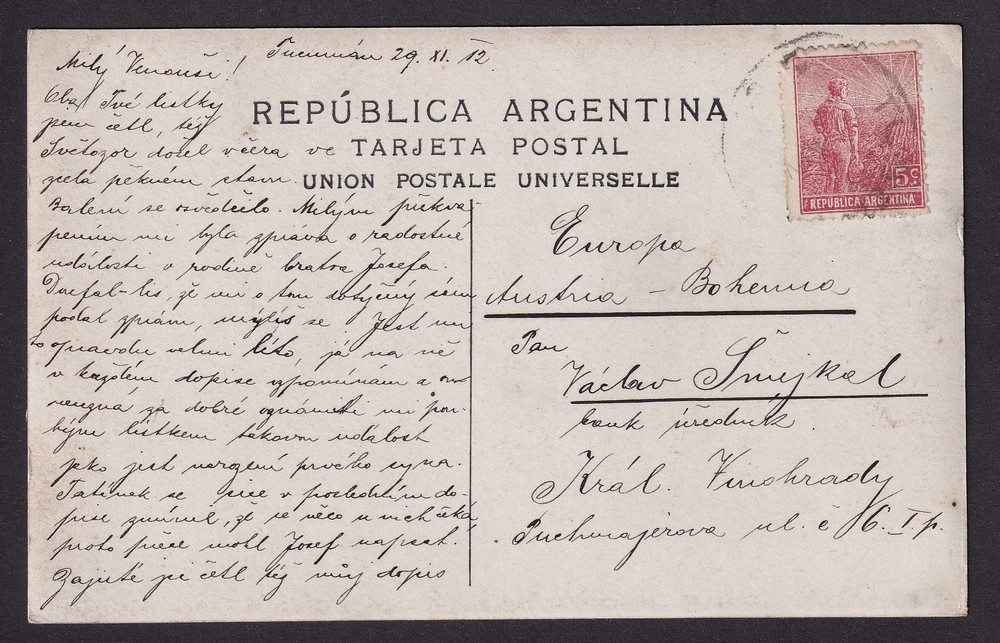 Tucumán 29. XI. 12
Milý Venouši!
Oba Tvé lístky
jsem četl, též
Světozor došel včera ve
zcela pěkném stavu
Balení se osvědčilo. Milým překva-
pením mi byla zpráva o radostné
události v rodině bratra Josefa.
Doufal-lis, že mi o tom dotyčný sám
podal zprávu, mýlíš se. Jest mi
to opravdu velmi líto, já na ně
v každém dopise vzpomínám a on
neuzná za dobré oznámiti mi pou-
hým lístkem takovou událost
jako jest narození prvého syna.
Tatínek se sice v posledním do-
pise zmínil, že se něco u nich čeká,
proto přece mohl Josef napsat.
Zajisté jsi četl též můj dopis
REPÚBLICA ARGENTINA
TARJETA POSTAL
UNION POSTALE UNIVERSELLE
5c
REPÚBLICA ARGENTINA
Europa
Austria - Bohemia
Pan
Václav Šmejkal
bank. úředník.
Král. Vinohrady
Puchmajerova ul. č 6. I. p.